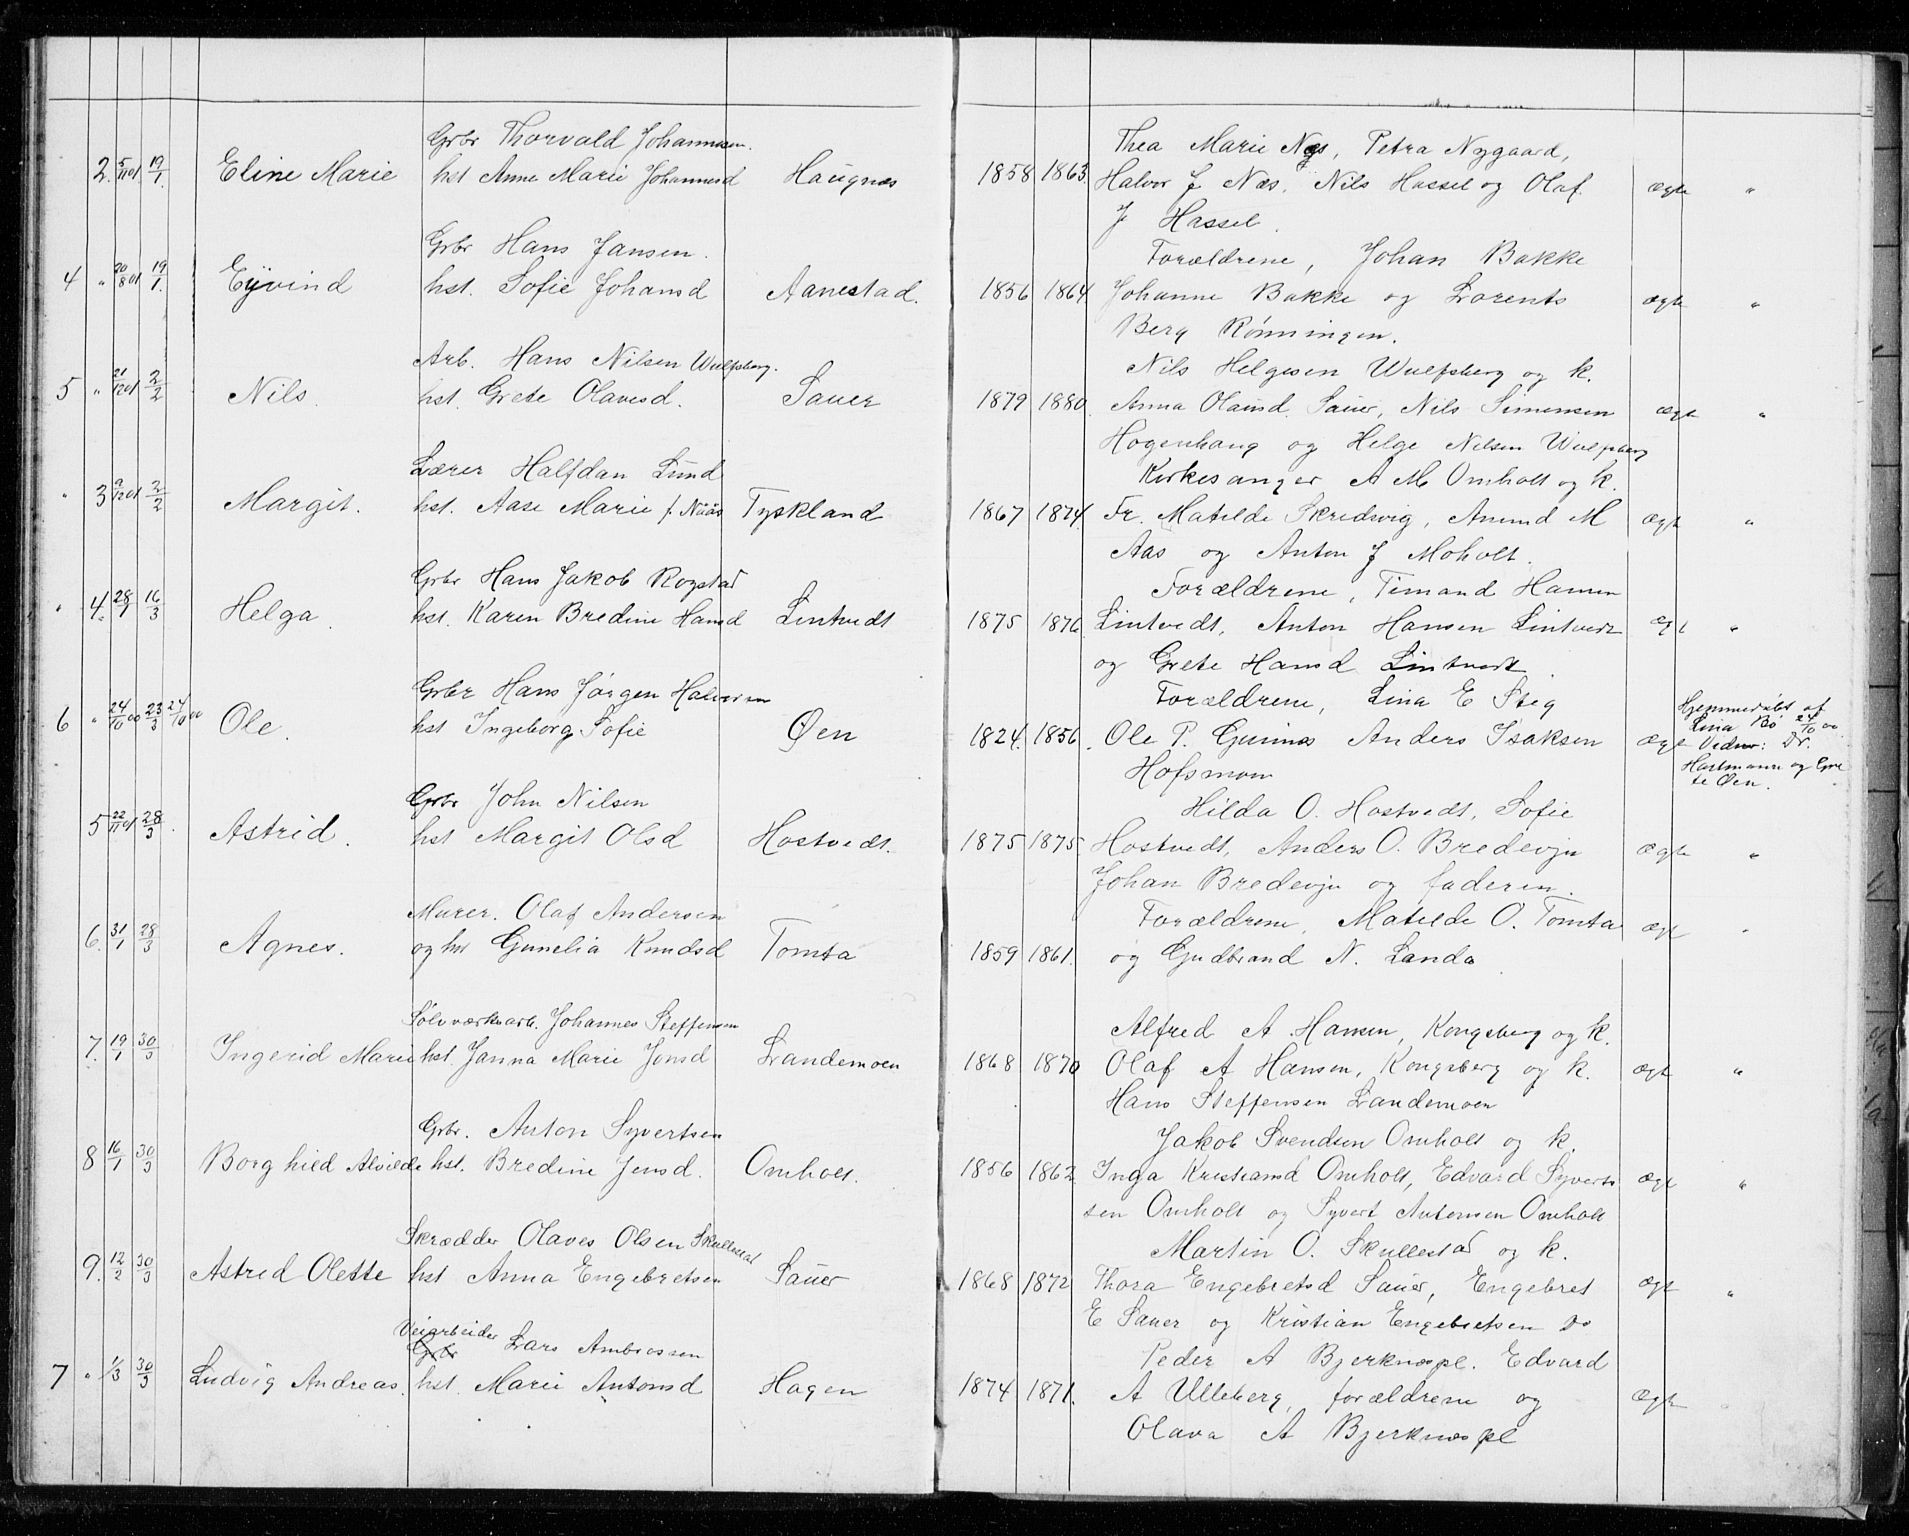 Grbr Thorvald Johannesen.
2. 5/11 01 19/1. Eline Marie hst Anne Marie Johannesd Haugnæs
Grbr Hans Jansen.
4 " 20/8 01 19/1. Eyvind hst. Sofie Johansd Aanestad.
Arb. Hans Nilsen Wulfsberg.
5 " 21/12 01 2/2 Nils. hst. Grete Olavesd. Sauer
Lærer Halfdan Lund
" 3 9/12 01 2/2 Margit. hst. Aase Marie f. Tyskland
Grbr Hans Jakob Rogstad
" 4. 28/1 16/3 Helga. hst. Karen Bredine Hansd Lintvedt
Grbr Hans Jørgen Halvorsen
6 " 24/10 00 23/3 24/10 00 Ole. hst Ingeborg Sofie Øen
Grbr John Nilsen
5 22/11 01 28/3. Astrid. hst Margit Olsd Hostvedt.
Murer. Olaf Andersen
6. 31/1 28/3 Agnes. og hu Gunelia Knudsd Tomta
Sølvværksarb. Johannes Steffensen
7. 19/1 30/3 Ingerid Marie hst. Janna Marie Jonsd Landemoen
Grbr. Anton Syvertsen
8 16/1 30/3 Borghild Alvilde hst. Bredine Jensd. Omholt.
Skrædder Olaves Olsen Skullestad
9. 12/2 30/3 Astrid Olette hst Anna Engebretsen Sauer
Veiarbeider Lars Ambrosen
Grbr
7 " 1/3 30/3 Ludvig Andreas. hst. Marie Antonsd Hagen
Thea Marie Næs, Petra Nygaard,
1858 1863 Halvor J Næs. Nils Hassel og Olaf ægte "
J Hassel.
Forældrene, Johan Bakke
1856 1864 Johanne Bakke og Lorents ægte "
Berg Rønningen.
Nils Helgesen Wulfsberg og k.
1879 1880 Anna Olausd. Sauer, Nils Simensen ægte "
Hogenhaug og Helge Nilsen Wulfsberg
Kirkesanger A M Omholt og k.
1867 1874 Fr. Matilde Skredsvig, Anund M ægte "
Aas og Anton J Moholt.
Forældrene, Timand Hansen
1875 1876 Lintvedt, Anton Hansen Lintvedt ægt "
og Grete Hansd Lintvedt
Forældrene, Lina E Steg
1824. 1856. Ole P. Gunnes Anders Isaksen ægt
Hofsmoen
Hjemmedøbt af
Lina Bø 24/10 00
Vidner: Dr.
Hartmann og Gre
te Øen.
Hilda O. Hostvedt, Sofie
1875 1875 Hostvedt, Anders O. Bredevju ægte "
Johan Bredevju og faderen.
Forældrene, Matilde O. Tomta ægt "
1859 1861. og Gudbrand N. Landa
Alfred A. Hansen, Kongsberg og k.
1868 1870 Olaf A Hansen, Kongsberg og k. ægt "
Hans Steffensen Landemoen
Jakob Svendsen Omholt og k.
1856 1862 Inga Kristiansd Omholt, Edvard Syvert ægt "
sen Omholt og Syvert Antonsen Omholt
Martin O. Skullestad og k.
1868 1872 Thora Engebretsd Sauer, Engebret ægt "
E Sauer og Kristian Engebretsen Do
Peder A Bjerknæspl. Edvard
1874 1871. A Ulleberg, forældrene og ægte
Olava A Bjerknæspl